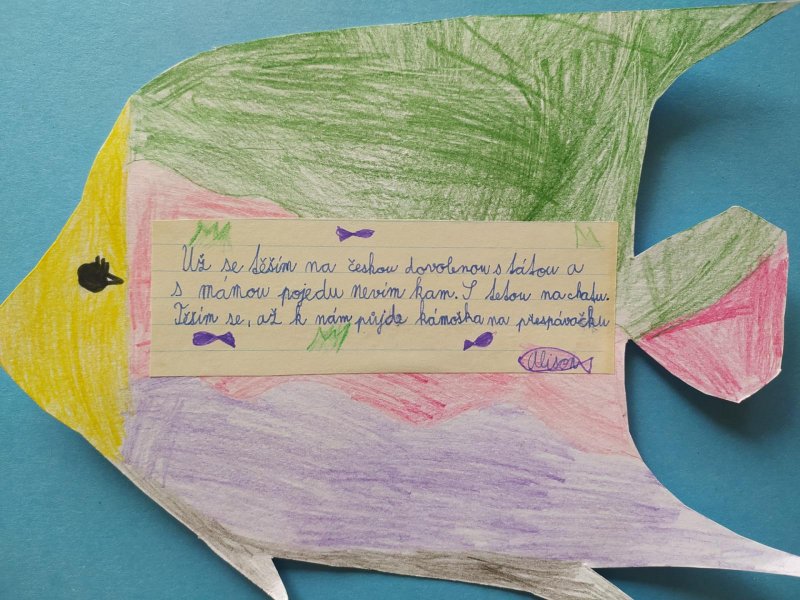 Už se těším na českou dovolenou s tátou a
s mámou pojedu nevím kam. S tetou na chatu.
Těším se, až k nám půjde kámoška na přespávačku
Alison